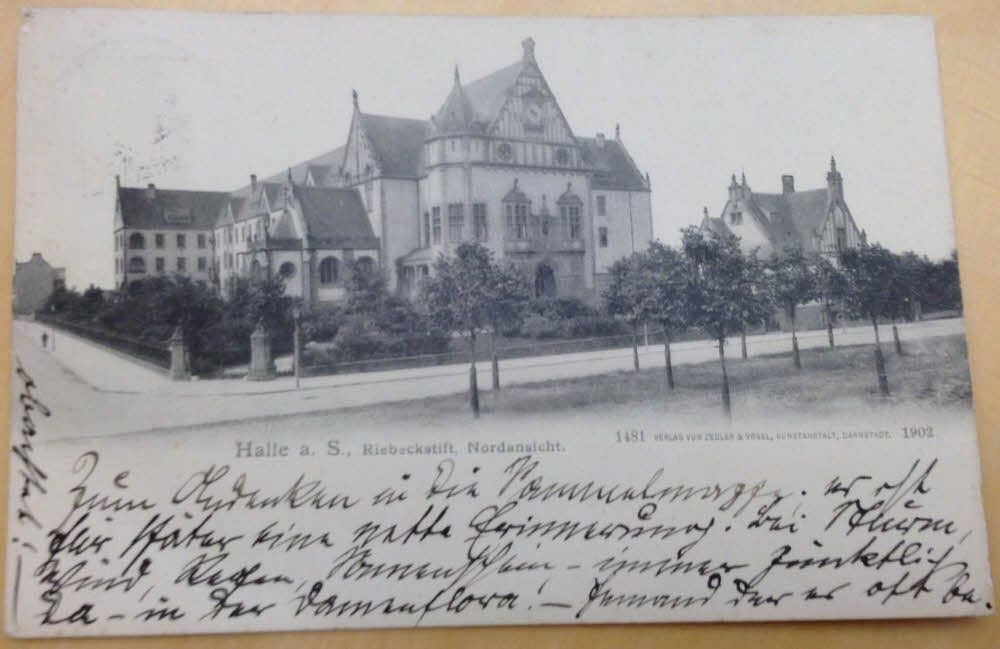 Halle a. S., Riebeckstift, Nordansicht.
1481 VERLAG VON ZEDLER & VOGEL, KUNSTANSTALT, DARMSTADT. 1902
Zum Andenken in die Sammelmappe; es ist
für später eine nette Erinnerung. Bei Sturm,
Wind, Regen, Sonnenschein, – immer pünktlich
da – in der Damenflora! – Jemand der es oft be-
obachtet! –